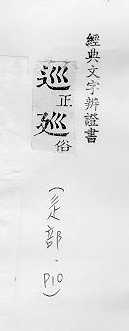 經典文字辨證書
巡正廵俗
(辵部.P10)